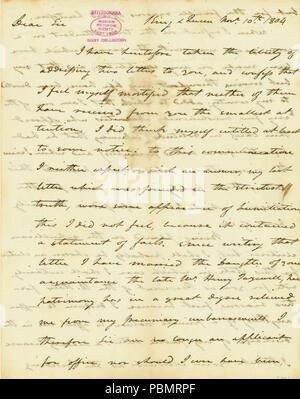 Dear Sir
King & Queen Nov. 10th 1804
JEFFERSONIA
MISSOURI
HISTORICAL
SOCIETY
BIXBY COLLECTION
I have heretofore taken the liberty of
addressing two letters to you, and confess that
I feel myself mortified that neither of them
have received from you the smallest at
tention. I did think myself entitled at least
to some notice. to this communication
I neither expect nor wish an answer, my last
letter which was founded in the strictest
truth wore some appearance of humiliation
this I did not feel, because it contained
a statement of facts. since writing that
letter I have married the daughter of your
acquaintance the late Mr Henry Tazewell, her
patrimony has in a great degree relieved
me from my pecuniary embarrassments. I
therefore Sir am no longer an applicant
for office, nor should I ever have been
alamy
Image ID: PBMRPF
www.alamy.com